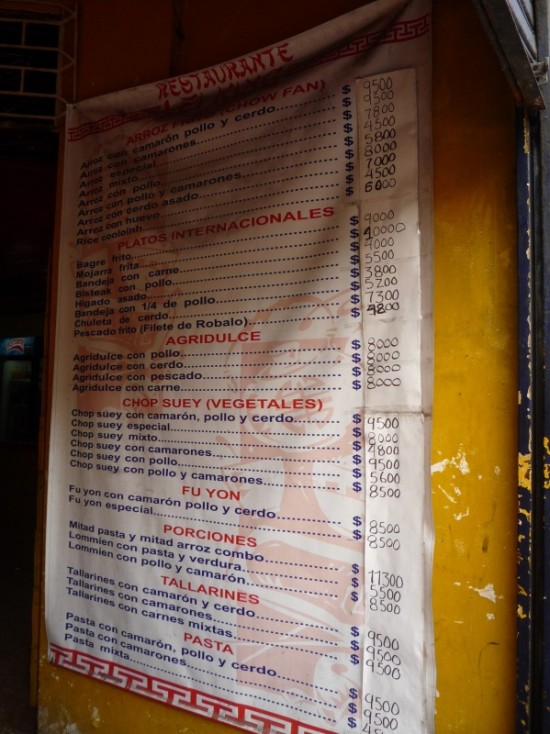 RESTAURANTE
ARROZ (CHOW FAN)
Arroz con camarón pollo y cerdo $ 9500
Arroz con camarones $ 9300
Arroz especial $ 7800
Arroz mixto $ 4500
Arroz con pollo $ 5800
Arroz con pollo y camarones $ 8000
Arroz con cerdo asado $ 7000
Arroz con huevo $ 4500
Rice $ 6000
PLATOS INTERNACIONALES
Bagre frito $ 9000
Mojarra frita $ 10000
Bandeja con carne $ 9000
Bisteak con pollo $ 5500
Higado asado $ 3800
Bandeja con 1/4 de pollo $ 5200
Chuleta de cerdo $ 7300
Pescado frito (Filete de Robalo) $ 9800
AGRIDULCE
Agridulce con pollo $ 8000
Agridulce con cerdo $ 8000
Agridulce con pescado $ 8000
Agridulce con carne $ 8000
CHOP SUEY (VEGETALES)
Chop suey con camarón, pollo y cerdo $ 9500
Chop suey especial $ 8000
Chop suey mixto $ 4800
Chop suey con camarones $ 9500
Chop suey con pollo $ 5600
Chop suey con pollo y camarones $ 8500
FU YON
Fu yon con camarón pollo y cerdo $ 8500
Fu yon especial $ 8500
PORCIONES
Mitad pasta y mitad arroz combo $ 11300
Lommien con pasta y verdura $ 5500
Lommien con pollo y camarón $ 8500
TALLARINES
Tallarines con camarón y cerdo $ 9500
Tallarines con camarones $ 9500
Tallarines con carnes mixtas $ 9500
PASTA
Pasta con camarón, pollo y cerdo $ 9500
Pasta con camarones $ 9500
Pasta mixta $